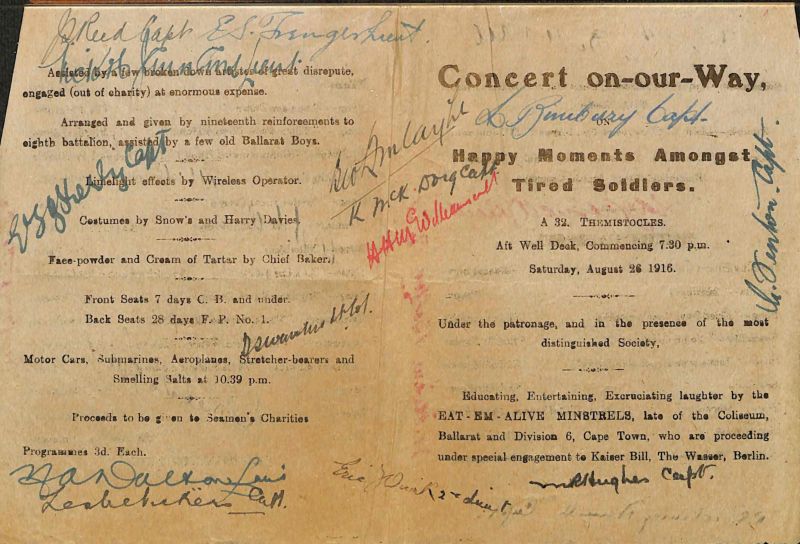 J. Reed Capt
Assisted by a few broken down artistes of great disrepute,
engaged (out of charity) at enormous expense.
Arranged and given by nineteenth reinforcements to
eighth battalion, assisted by a few old Ballarat Boys.
Capt
Limelight effects by Wireless Operator.
Costumes by Snow's and Harry Davies.
Face-powder and Cream of Tartar by Chief Baker.
Front Seats 7 days C. B. and under.
Back Seats 28 days F. P. No. 1.
Motor Cars, Submarines, Aeroplanes, Stretcher-bearers and
Smelling Salts at 10.39 p.m.
Proceeds to be given to Seamen's Charities
Programmes 3d. Each.
Capt.
K McK Doig Capt
Eric J
2nd Lieut
Concert on-our-Way,
ON
Capt.
Happy Moments Amongst
Tired Soldiers.
A 32. THEMISTOCLES.
Aft Well Deck, Commencing 7.30 p.m.
Saturday, August 26 1916.
Capt.
Under the patronage, and in the presence of the most
distinguished Society,
Educating, Entertaining, Excruciating laughter by the
EAT-EM-ALIVE MINSTRELS, late of the Coliseum,
Ballarat and Division 6, Cape Town, who are proceeding
under special engagement to Kaiser Bill, The Wasser, Berlin.
Hughes Capt.